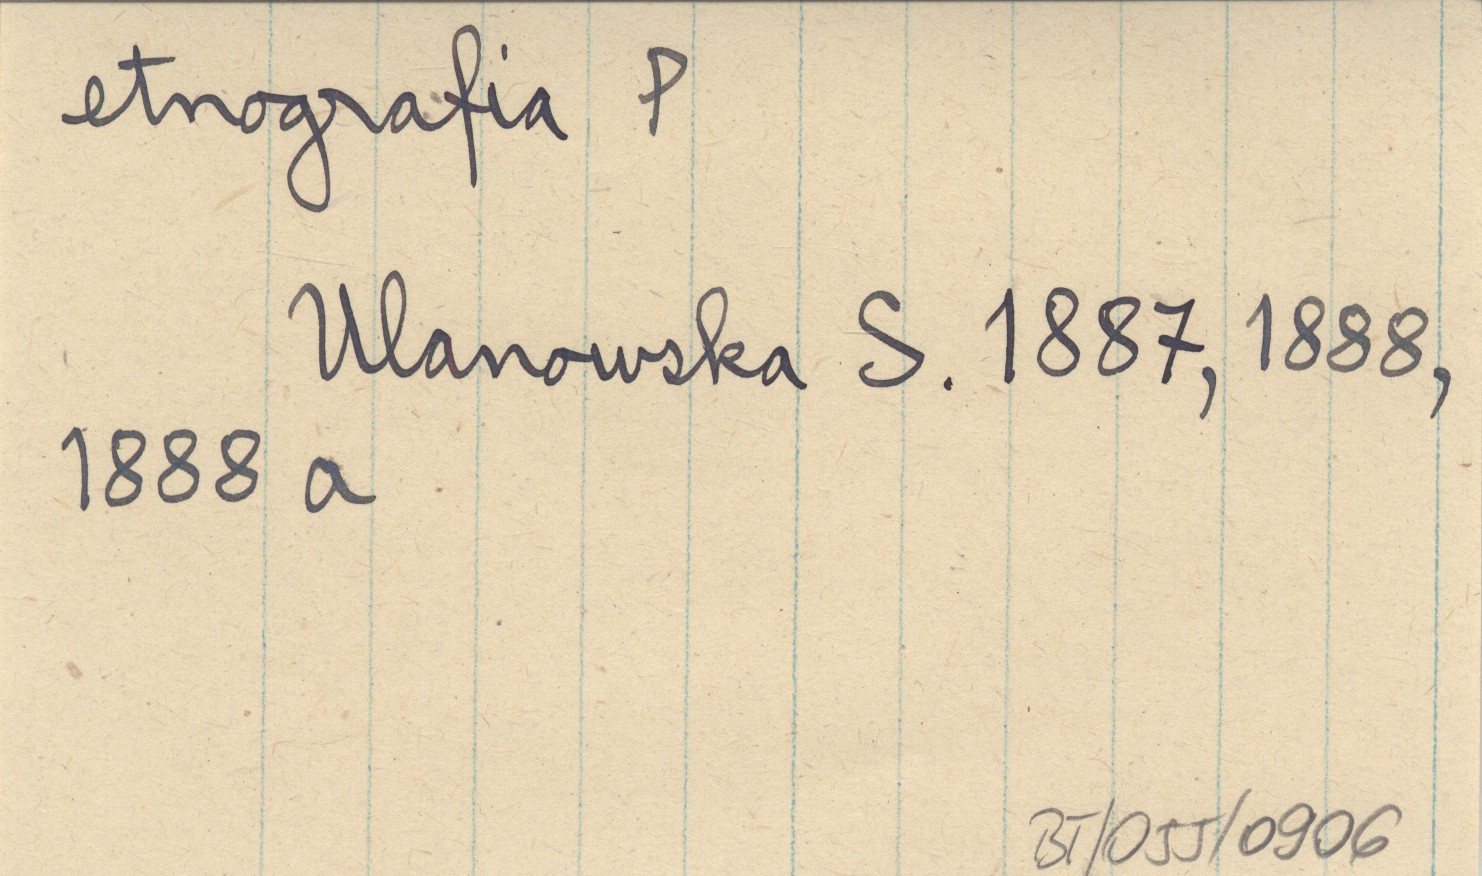 etnografia P
Ulanowska S. 1887, 1888,
1888 a
BT/055/0906